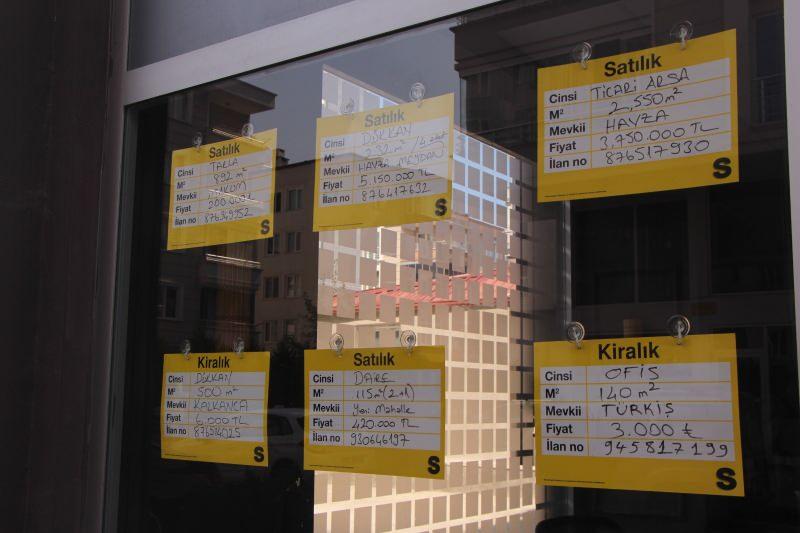 Satılık
Cinsi TARLA
M² 892 m²
Mevkii
Fiyat 200.000
İlan no 876349952
S
Satılık
Cinsi DÜKKAN
M² 232 m² / 4
Mevkii HAVZA MEYDAN
Fiyat 5.150.000 TL
İlan no 876417632
S
Satılık
Cinsi TİCARİ ARSA
M² 2,550 m²
Mevkii HAVZA
Fiyat 3,750.000 TL
İlan no 876517930
S
Kiralık
Cinsi DÜKKAN
M² 500 m²
Mevkii KALKANCA
Fiyat 6.000 TL
İlan no 876514025
S
Satılık
Cinsi DARE
M² 115 m² (2+1)
Mevkii Yeni Mahalle
Fiyat 420.000 TL
İlan no 930646197
S
Kiralık
Cinsi OFİS
M² 140 m²
Mevkii TÜRKİŞ
Fiyat 3.000 ₺
İlan no 945817199
S